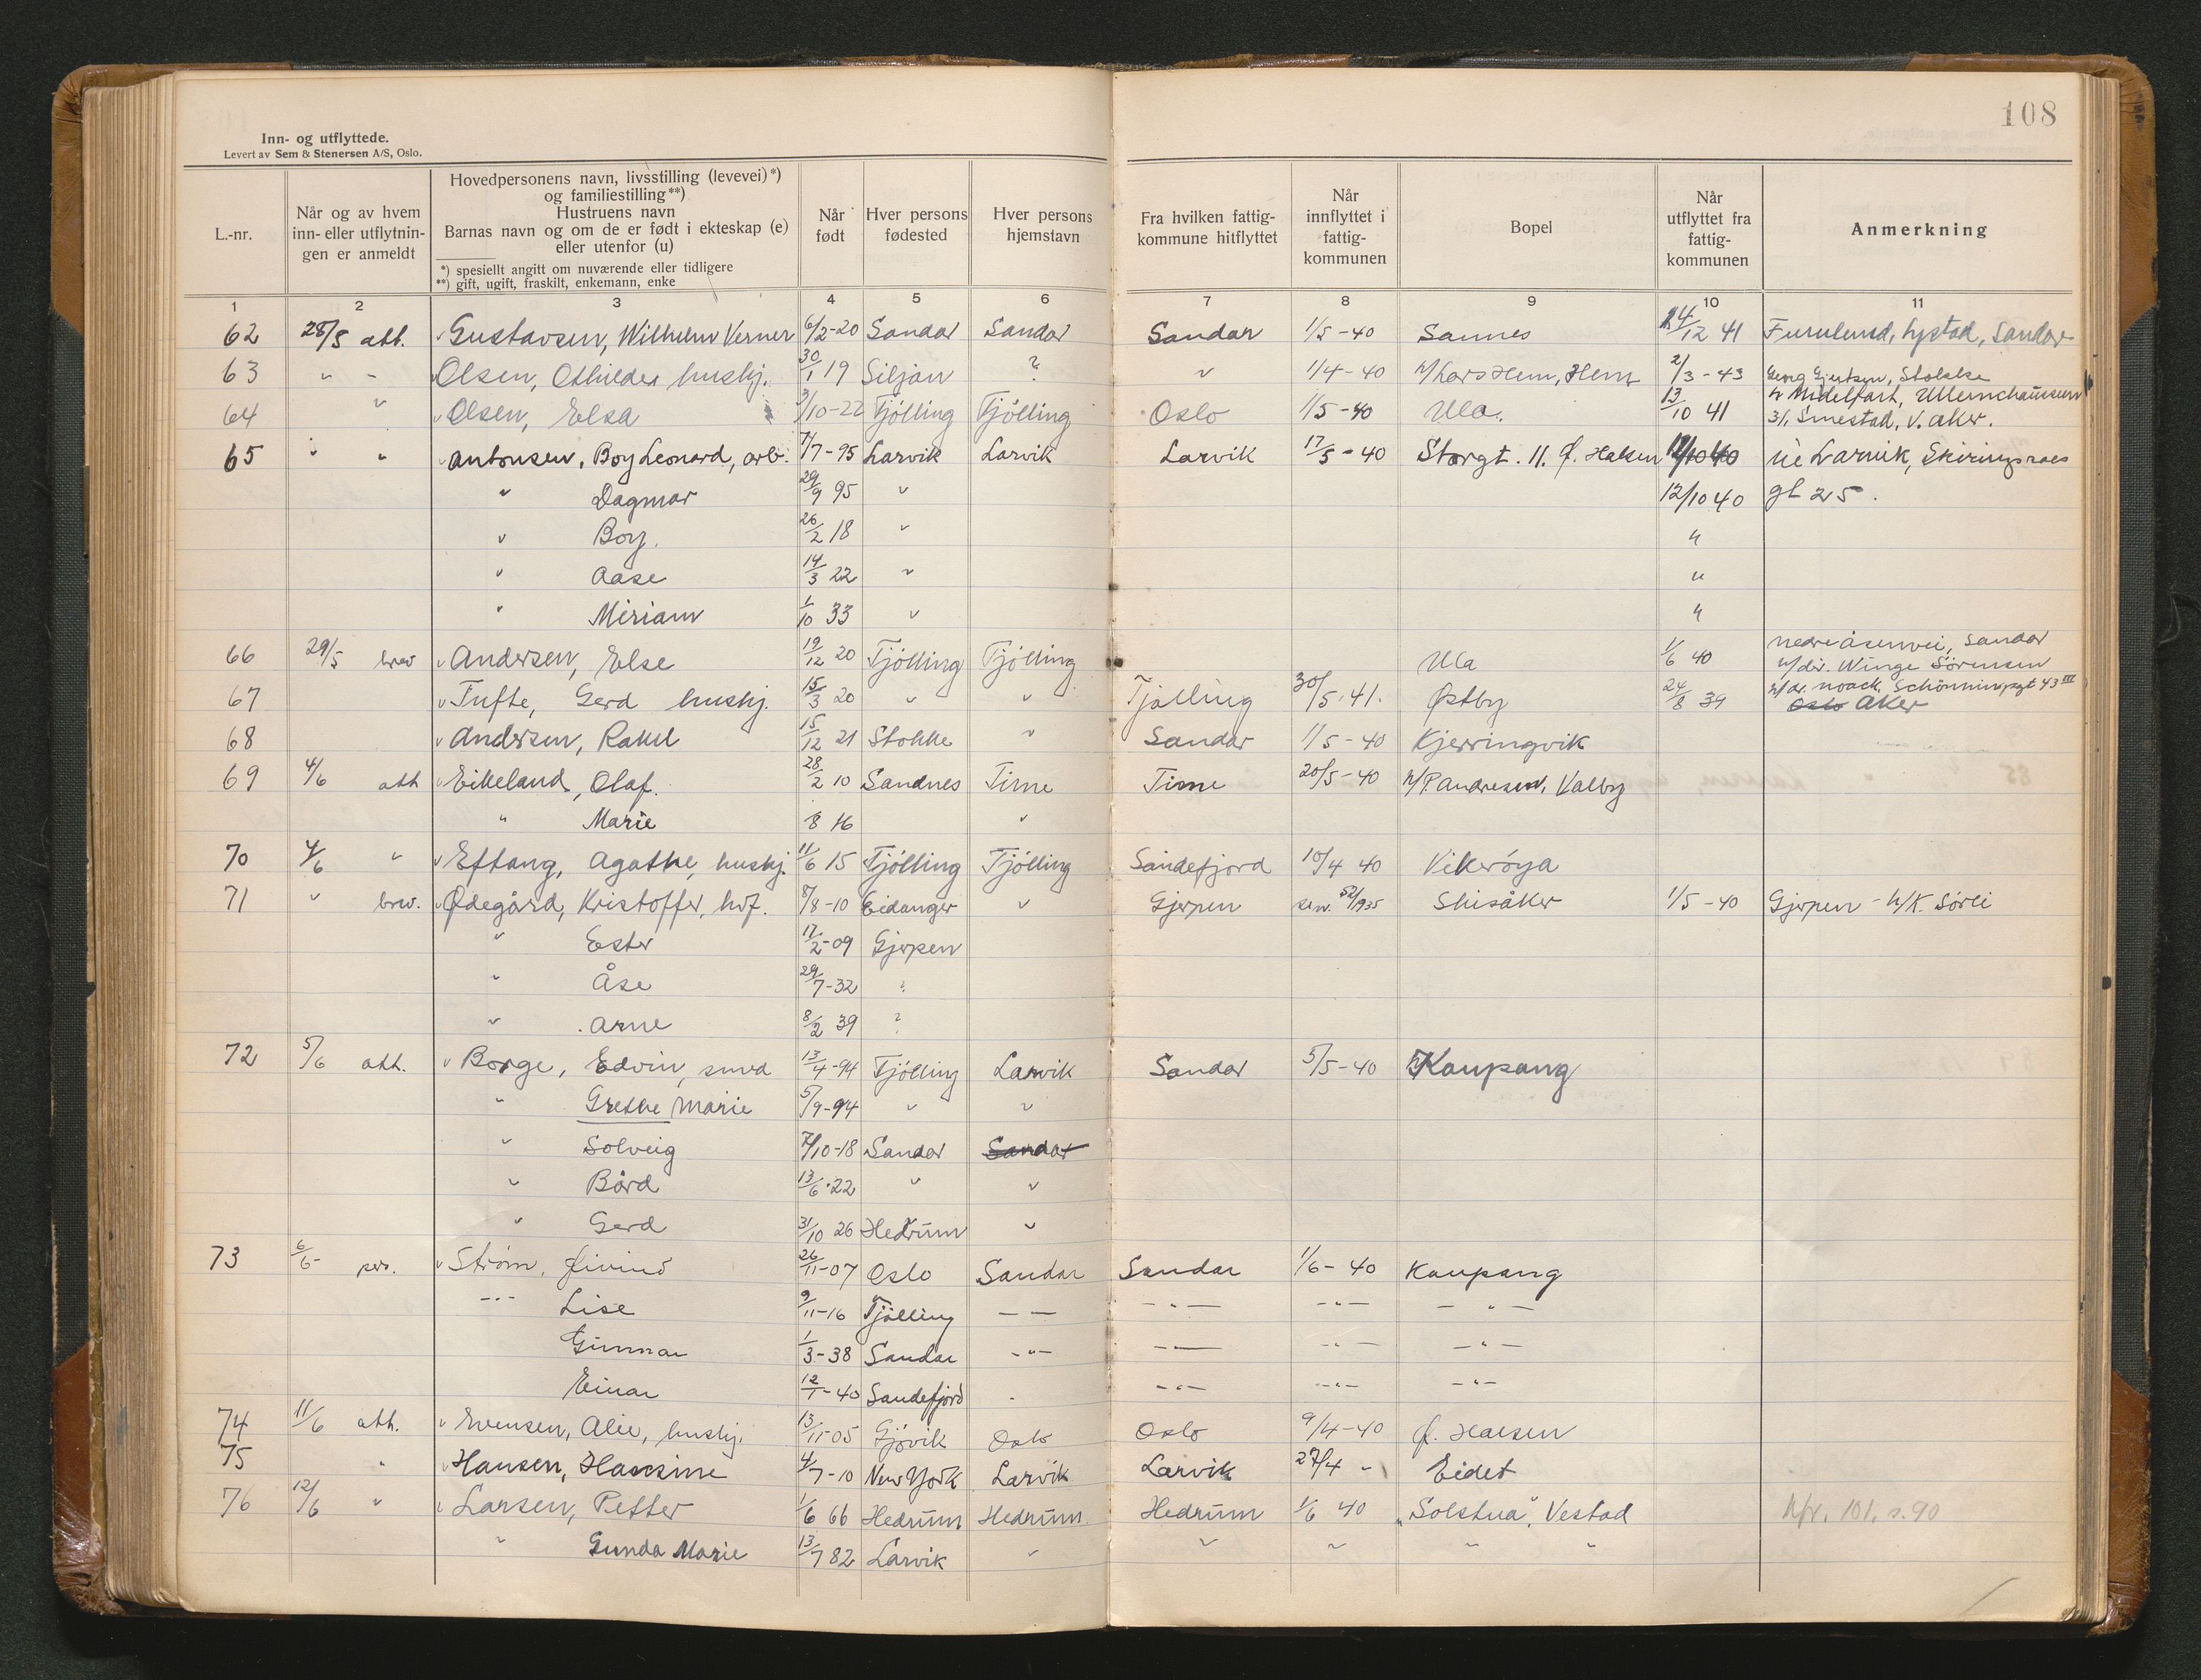 108
Inn- og utflyttede.
Levert av Sem & Stenersen A/S, Oslo.
L.-nr.
Når og av hvem inn- eller utflytnin-gen er anmeldt
Hovedpersonens navn, livsstilling (levevei)*) og familiestilling**)
Hustruens navn
Barnas navn og om de er født i ekteskap (e) eller utenfor (u)
*) spesiellt angitt om nuværende eller tidligere
**) gift, ugift, fraskilt, enkemann, enke
Når født
Hver persons fødested
Hver persons hjemstavn
Fra hvilken fattig-kommune hitflyttet
Når innflyttet i fattig-kommunen
Bopel
Når utflyttet fra fattig-kommunen
Anmerkning
1 2 3 4 5 6 7 8 9 10 11
62 28/5 att. Gustavsen, Wilhelm Verner 6/2-20 Sandar Sandar Sandar 1/5-40 Sannes 24/12 41 Sandar
63 " - Olsen, Othilde hushj. 30/1 19 Siljan ? " 1/4-40 h/Lars Hem, Hem 2/3-43 Stokke
64 " Olsen, Elsa 3/10-22 Tjölling Tjölling Oslo 1/5-40 Ula. 13/10 41 31, Smestad, V. Aker.
65 " " Antonsen, Boy Leonard, arb. 7/7-95 Larvik Larvik Larvik 17/5-40 Storgt. 11. Ø. Halsen 12/10 40 Larvik, Skiringssals
" Dagmar 29/9 95 " 12/10 40 gt 25.
" Boy. 26/2 18 " "
" Aase 14/3 22 " "
" Miriam 1/10 33 " "
66 29/5 brev Andersen, Else 19/12 20 Tjölling Tjölling Ula 1/6 40 Nedre Åsenvei, Sandar h/dir. Winge Sörensen
67 Tufte, Gerd hushj. 15/3 20 " " Tjølling 30/5-41. Østby 24/8 39 h/dr. Noack, Schönningsgt 43 III Oslo Aker
68 Andersen, Rakel 15/12 21 Stokke " Sandar 1/5-40 Kjerringvik
69 4/6 att Eikeland, Olaf. 28/2 10 Sandnes Time Time 20/5-40 h/P. Andresen, Valby
" Marie 8 16 "
70 4/6 " Eftang, Agathe, hushj. 11/6 15 Tjölling Tjölling Sandefjord 10/4 40 Vikeröya
71 " brev. Ødegård, Kristoffer, hvf. 8/8-10 Eidanger " Gjerpen Skisåker 1/5-40 Gjerpen - h/K. Sörli
" Ester 17/2-09 Gjerpen
" Åse 29/7-32 "
" Arne 8/2 39 ?
72 5/6 att. Borge, Edvin, smed 13/4-94 Tjölling Larvik Sandar 5/5-40 Kaupang
" Grethe Marie 5/9-94 " "
" Solveig 7/10-18 Sandar Sandar
" Bård 13/6-22 " "
" Gerd 31/10 26 Hedrum "
73 6/6- pers. Strøm, Øivind 26/11-07 Oslo Sandar Sandar 1/6-40 Kaupang
--- Lise 9/11-16 Tjølling — — —"— —"— —"—
Gunnar 1/3-38 Sandar —"— —— —"— —"—
Einar 12/1-40 Sandefjord - —"— —"— —"—
74 11/6 att. Evensen, Alie, hushj. 13/11-05 Gjövik Oslo Oslo 9/4-40 Ø. Halsen
75 " Hansen, Hansine 4/7-10 New York Larvik Larvik 27/4 - Eidet
76 12/6 " Larsen, Petter 1/6 66 Hedrum Hedrum Hedrum 1/6 40 "Solstua", Vestad Nr. 101, s. 90
" Gunda Marie 13/7 82 Larvik " " " " "